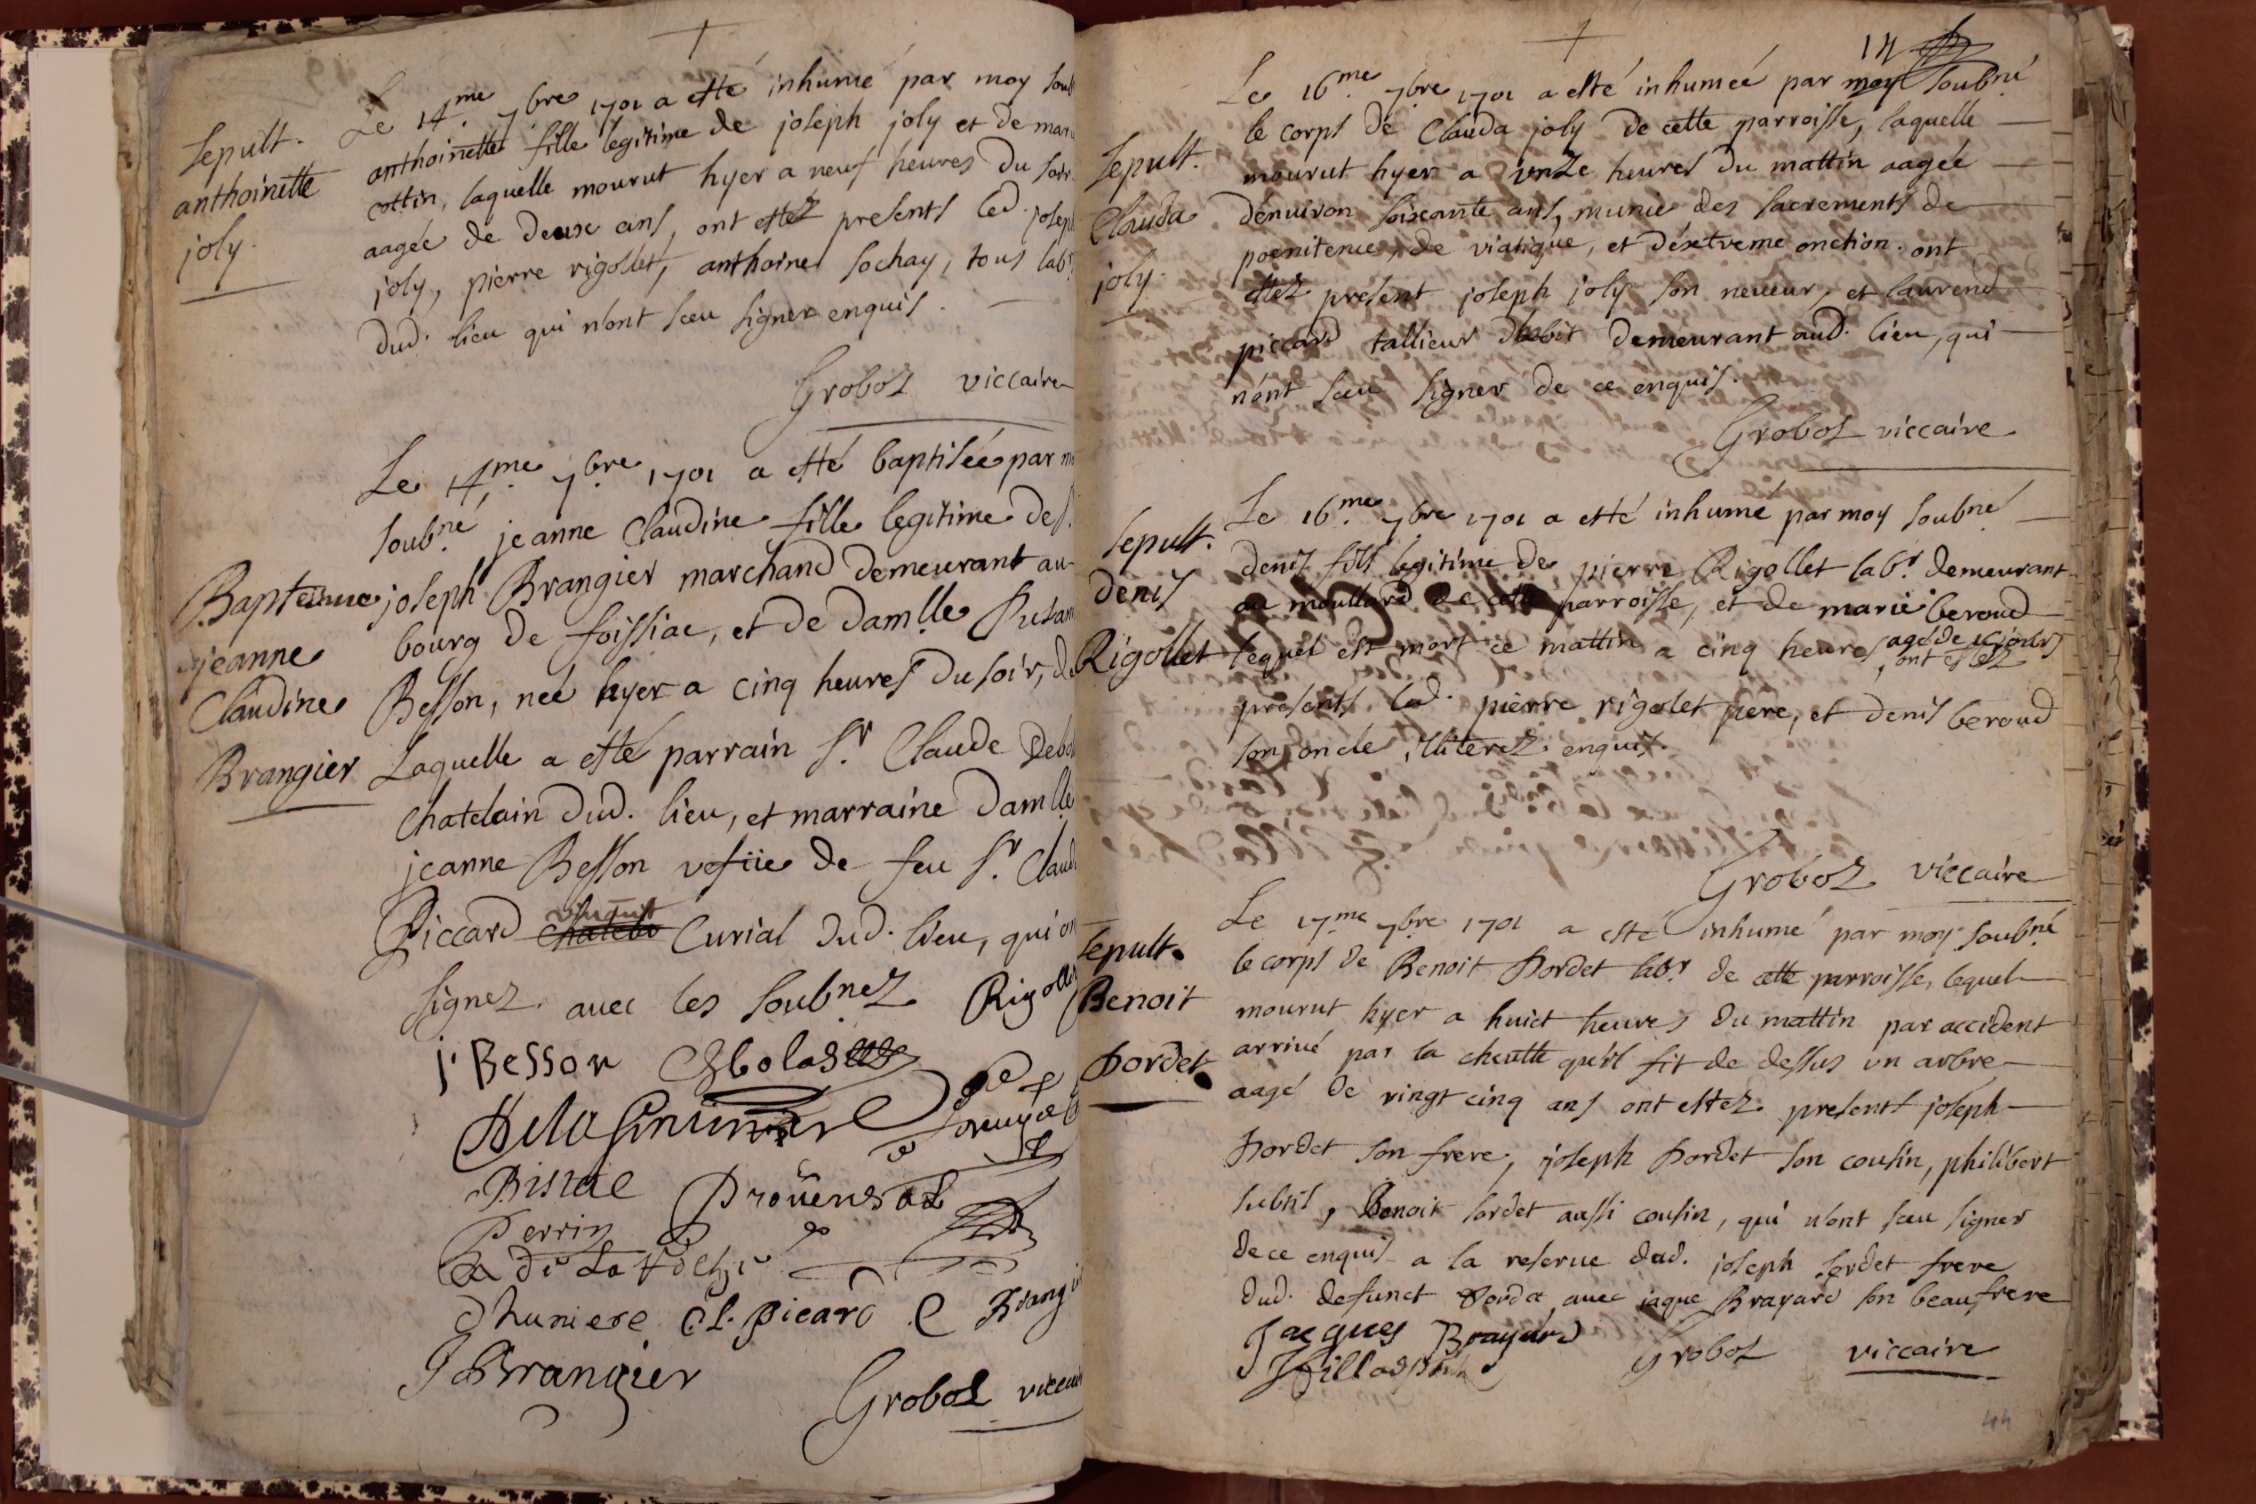 Sepult.
anthoinette
joly.
Le 14.me 7bre 1701 a esté inhumé par moy soub
anthoinette fille legitime de joseph joly et de marie
cottin, laquelle mourut hyer a neuf heures du soir
aagée de deux ans, ont estez presents led. joseph
joly, pierre rigollet, anthoine sochay, tous labr.
dud. lieu qui n'ont sceu signer enquis.
Groboz viccaire
Bapteme
jeanne
Claudine
Brangier
Le 14.me 7bre 1701 a esté baptisée par m
soubné jeanne Claudine fille legitime de s.
joseph Brangier marchand demeurant au
bourg de foissiac, et de damlle Susan
Besson, neé hyer a cinq heures du soir, de
Laquelle a esté parrain sr. Claude Debo
chatelain dud. lieu, et marraine damlle
jeanne Besson vefüe de feu sr. Claude
Piccard Curial dud. lieu, qui on
signez avec les soubnez Rigolle
j. Besson
Perrin Provensal
dhuniere Cl. Picard C Brangi
J Brangier
Groboz viccaire
14
Sepult.
Clauda
joly.
Le 16.me 7bre 1701 a esté inhumeé par moy soubné
le corps de Clauda joly de cette parroisse, laquelle
mourut hyer a unze heures du mattin aagée
denuiron soixante ans, munie des sacrements de
poenitence, de viatique, et d'extreme onction. ont
estez present joseph joly son neueur, et laurend
piccard tallieur dhabit demeurant aud. lieu, qui
n'ont sceu signer de ce enquis.
Groboz viccaire
Sepult.
Denis
Rigollet
Le 16.me 7bre 1701 a esté inhumé par moy soubné
denis fils legitime de pierre Rigollet labr. demeurant
au moullard de cette parroisse, et de marie beroud
lequel est mort ce mattin a cinq heures agé de jours
, ont estez
presents led. pierre rigolet pere, et denis beroud
son oncle illiterez enquis.
Groboz viccaire
Sepult.
Benoit
Sordet
Le 17.me 7bre 1701 a esté inhumé par moy soubné
le corps de Benoit Sordet labr de cette parroisse, lequel
mourut hyer a huict heures du mattin par accident
arriué par la cheutte qu'il fit de dessus un arbre
aagé de vingt cinq ans ont estez presents joseph
Sordet son frere, joseph Sordet son cousin, philibert
subtil, Benoit sordet aussi cousin, qui n'ont sceu signer
de ce enquis a la reserue dud. joseph sordet frere
dud. defunct Sordet avec iaque Brayard son beaufrere
Jacques Brayard
Groboz viccaire
44